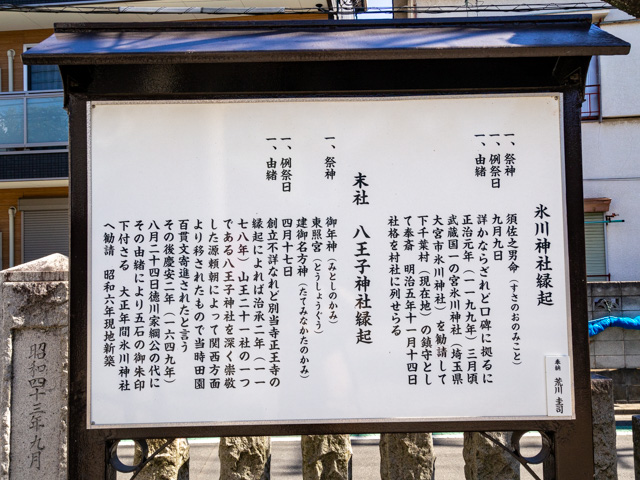 氷川神社縁起
一、祭神　須佐之男命（すさのおのみこと）
一、例祭日　九月九日
一、由緒　詳かならざれど口碑に拠るに
正治元年（一一九九年）三月頃
武蔵国一の宮氷川神社（埼玉県
大宮市氷川神社）を勧請して
下千葉村（現在地）の鎮守とし
て奉斎　明治五年十一月十四日
社格を村社に列せらる
末社　八王子神社縁起
一、祭神　御年神（みとしのかみ）
東照宮（とうしょうぐう）
建御名方神（たてみなかたのかみ）
一、例祭日　四月十七日
一、由緒　創立不詳なれど別当寺正王寺の
縁起によれば治承二年（一一
七八年）山王二十一社の一つ
である八王子神社を深く崇敬
した源頼朝によって関西方面
より移されたもので当時田園
百貫文寄進されたと言う
その後慶安二年（一六四九年）
八月二十四日徳川家綱公の代に
その由緒により五石の御朱印
下付さる　大正年間氷川神社
へ勧請　昭和六年現地新築
奉納　荒川圭司
昭和四十三年九月